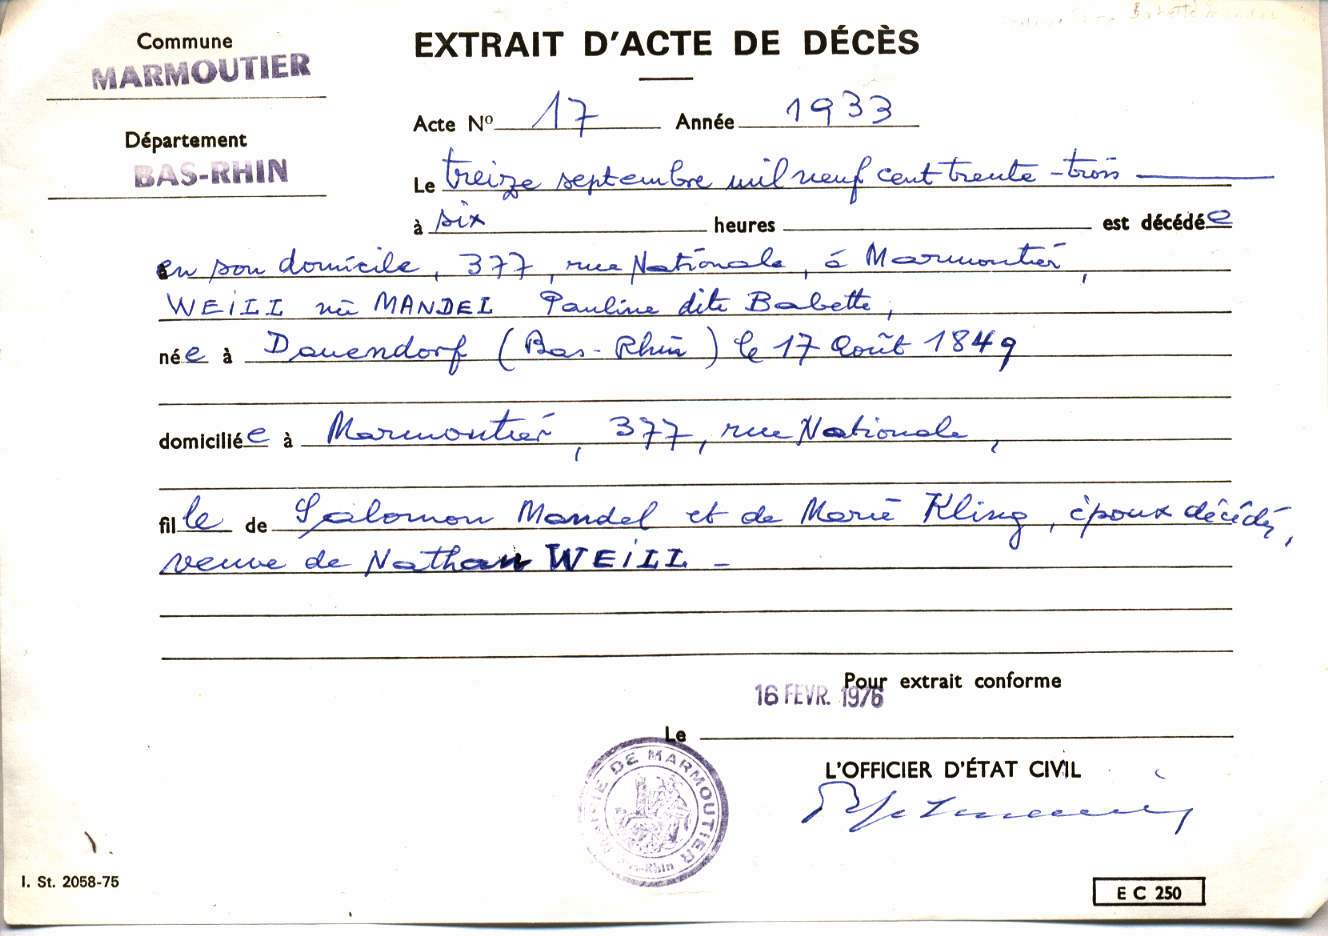 Commune
MARMOUTIER
EXTRAIT D'ACTE DE DÉCÈS
Acte Nº 17 Année 1933
Département
BAS-RHIN
Le treize septembre mil neuf cent trente-trois
à six heures est décédée
en son domicile, 377, rue Nationale, à Marmoutier,
WEILL née MANDEL Pauline dite Babette,
née à Dauendorf (Bas-Rhin) le 17 Août 1849
domiciliée à Marmoutier, 377, rue Nationale,
fille de Salomon Mandel et de Marie Kling, époux décédés,
veuve de Nathan WEILL -
Pour extrait conforme
16 FEVR. 1976
Le
MAIRIE DE MARMOUTIER
Bas-Rhin
L'OFFICIER D'ÉTAT CIVIL
I. St. 2058-75
E C 250